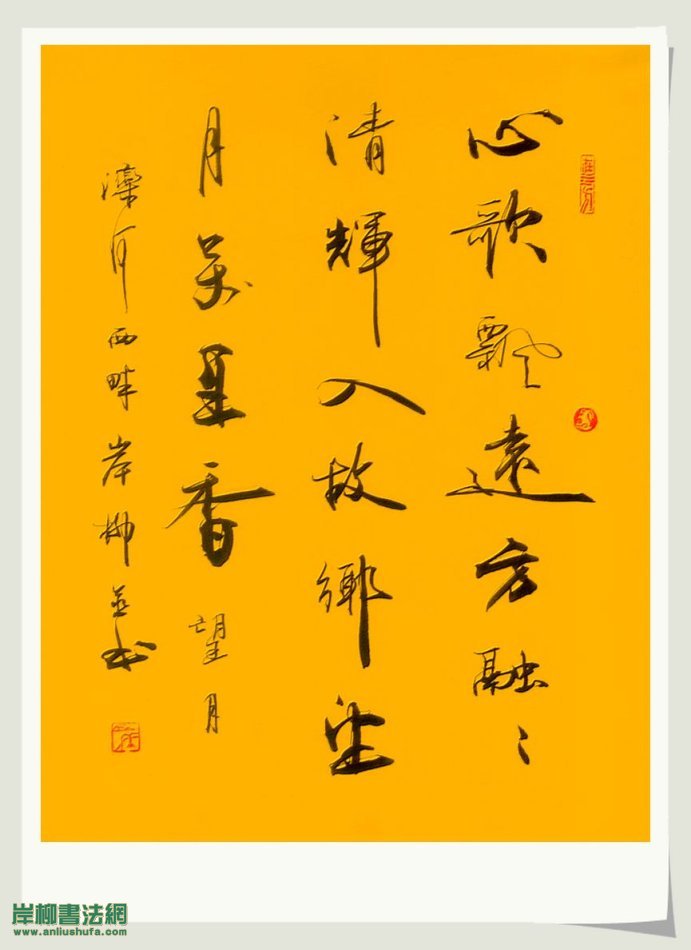 心歌飄遠方融〻
清輝入故鄉
月萬里香 望月
灤河西畔岸柳並书
岸柳書法網
www.anliushufa.com